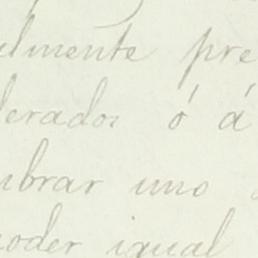 almente pre
derados ó á
mbrar uno
poder igual